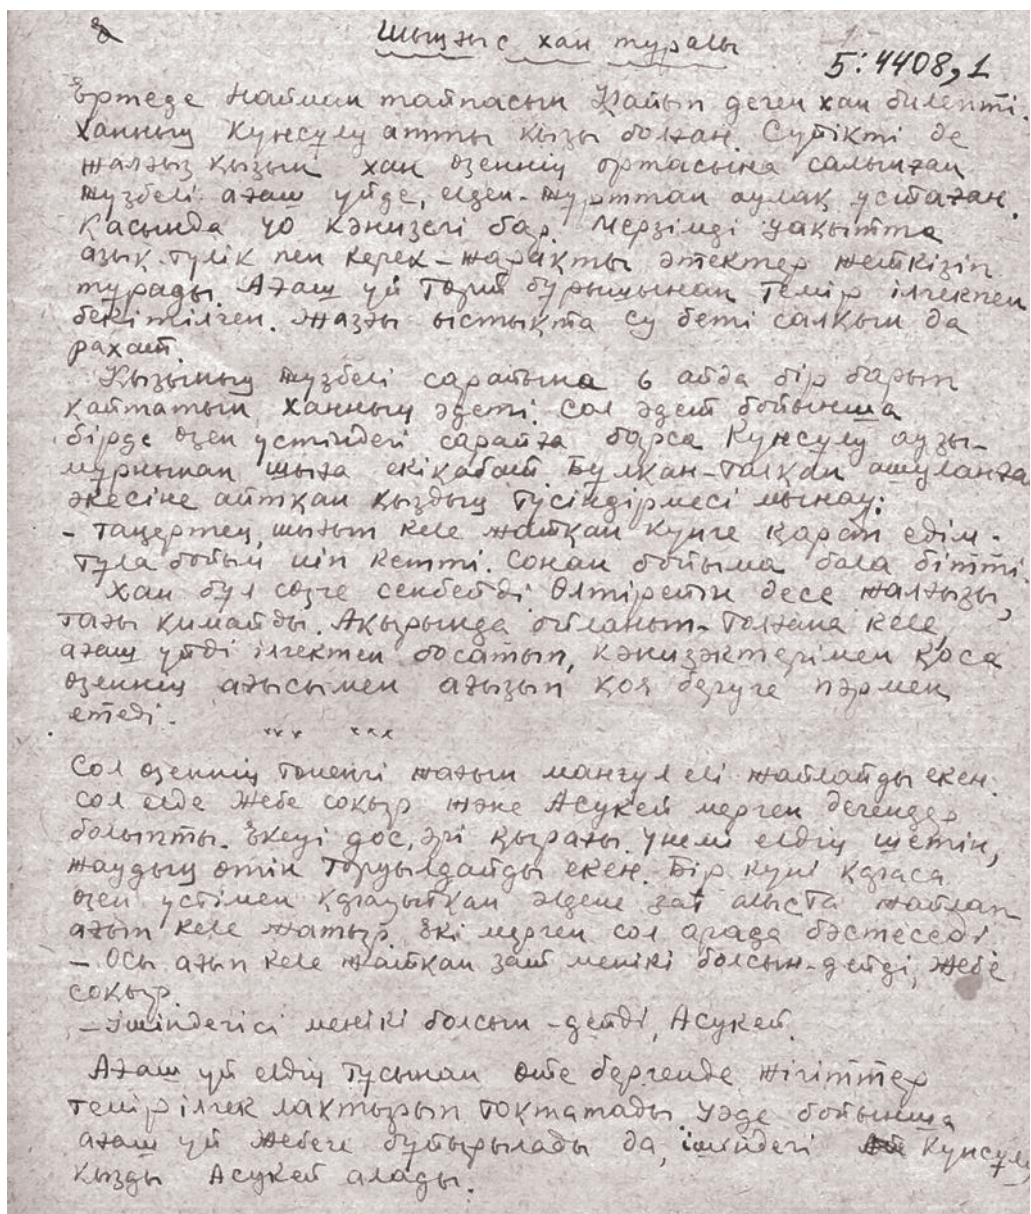 Шыңғыс хан туралы
5:4408,1
Ертеде Найман тайпасын Қайып деген хан билепті.
Ханның Күнсұлу атты қызы болған. Сүйікті де
жалғыз қызын хан өзеннің ортасына салынған
жүзбелі ағаш үйде, елден-жұрттан аулақ ұстаған.
Қасында 40 кәнизегі бар. Мерзімді уақытта
азық-түлік пен керек-жарақты әтектер жеткізіп
тұрады. Ағаш үй төрт бұрышынан темір ілгекпен
бекітілген. Жазғы ыстықта су беті салқын да
рахат.
Қызының жүзбелі сарайына 6 айда бір барып
қайтатын ханның әдеті. Сол әдет бойынша
бірде өзен үстіндегі сарайға барса Күнсұлу аузы-
мұрнынан шыға екіқабат. Бұлқан-талқан ашуланға
әкесіне айтқан қыздың түсіндірмесі мынау:
- таңертең, шығып келе жатқан күнге қарап едім.
Тұла бойым иіп кетті. Сонан бойыма бала бітті.
Хан бұл сөзге сенбейді. Өлтірейін десе жалғызы,
тағы қимайды. Ақырында ойланып-толғана келе,
ағаш үйді ілгектен босатып, кәнизәктерімен қоса
өзеннің ағысымен ағызып қоя беруге пәрмен
етеді.
*** ***
Сол өзеннің төменгі жағын манғұл елі жайлайды екен.
Сол елде Жебе соқыр және Асукей мерген дегендер
болыпты. Екеуі дос, әрі қырағы. Үнемі елдің шетін,
жаудың өтін торуылдайды екен. Бір күні қараса
өзен үстімен қарауытқан әлдене зат алыста жайлап
ағып келе жатыр. Екі мерген сол арада бәстеседі
- Осы ағып келе жатқан зат менікі болсын-дейді, Жебе
соқыр.
- Ішіндегісі менікі болсын-дейді, Асукей.
Ағаш үй елдің тұсынан өте бергенде жігіттер
темір ілгек лақтырып тоқтатады. Уәде бойынша
ағаш үй Жебеге бұйырылады да, ішіндегі Күнсұлу
қызды Асукей алады.